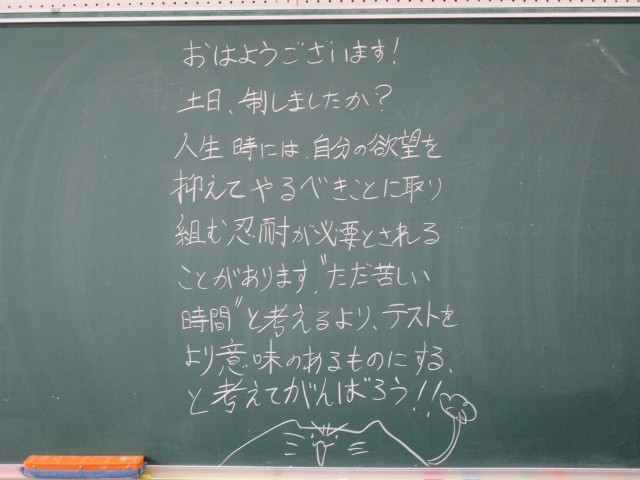 おはようございます!
土日、制しましたか?
人生 時には、自分の欲望を
抑えてやるべきことに取り
組む忍耐が必要とされる
ことがあります。"ただ苦しい
時間"と考えるより、テストを
より意味のあるものにする、
と考えてがんばろう!!